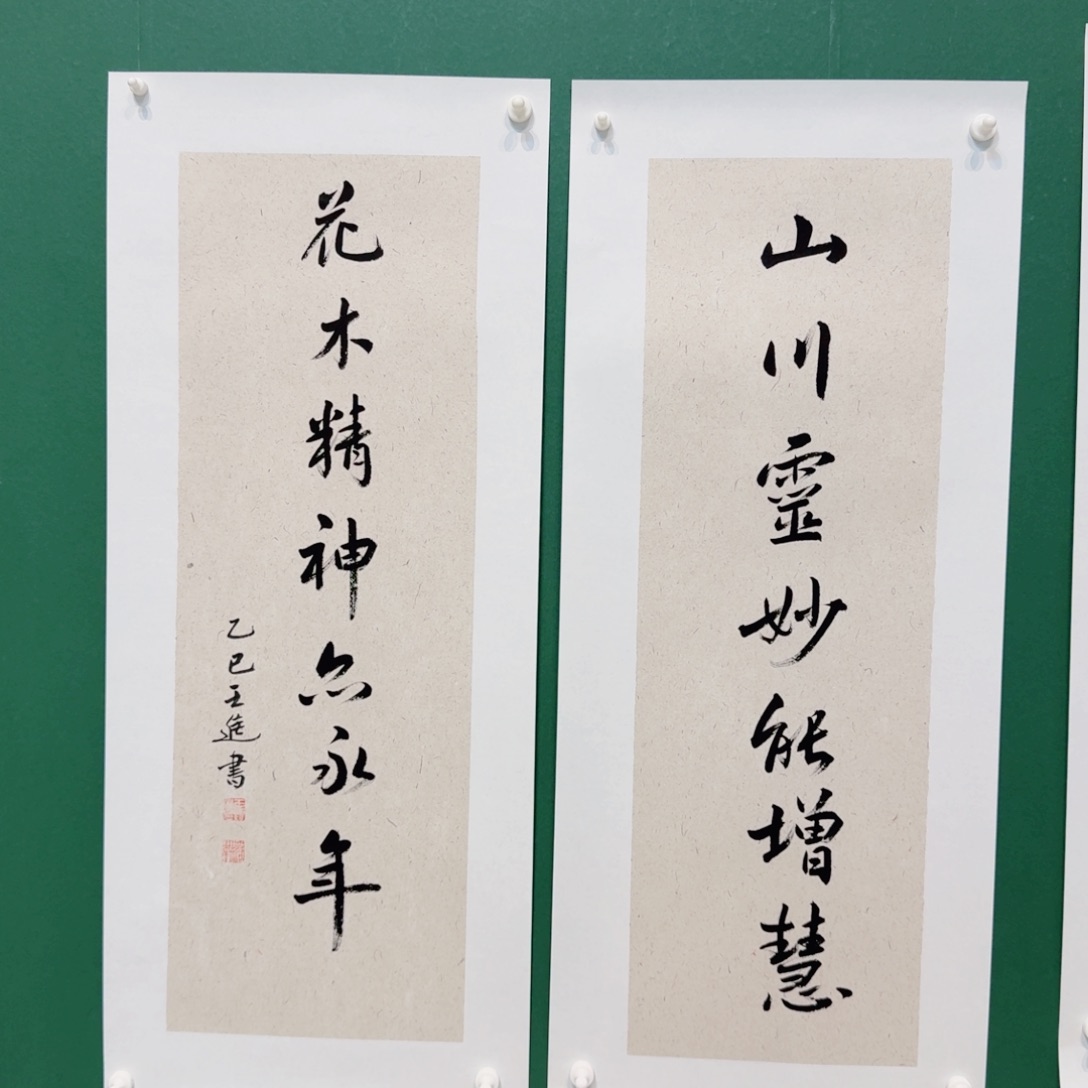 山川靈妙能增慧
花木精神亦永年
乙巳王進書